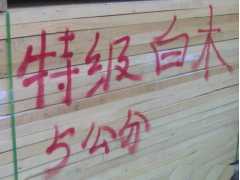 特级白木
5公分